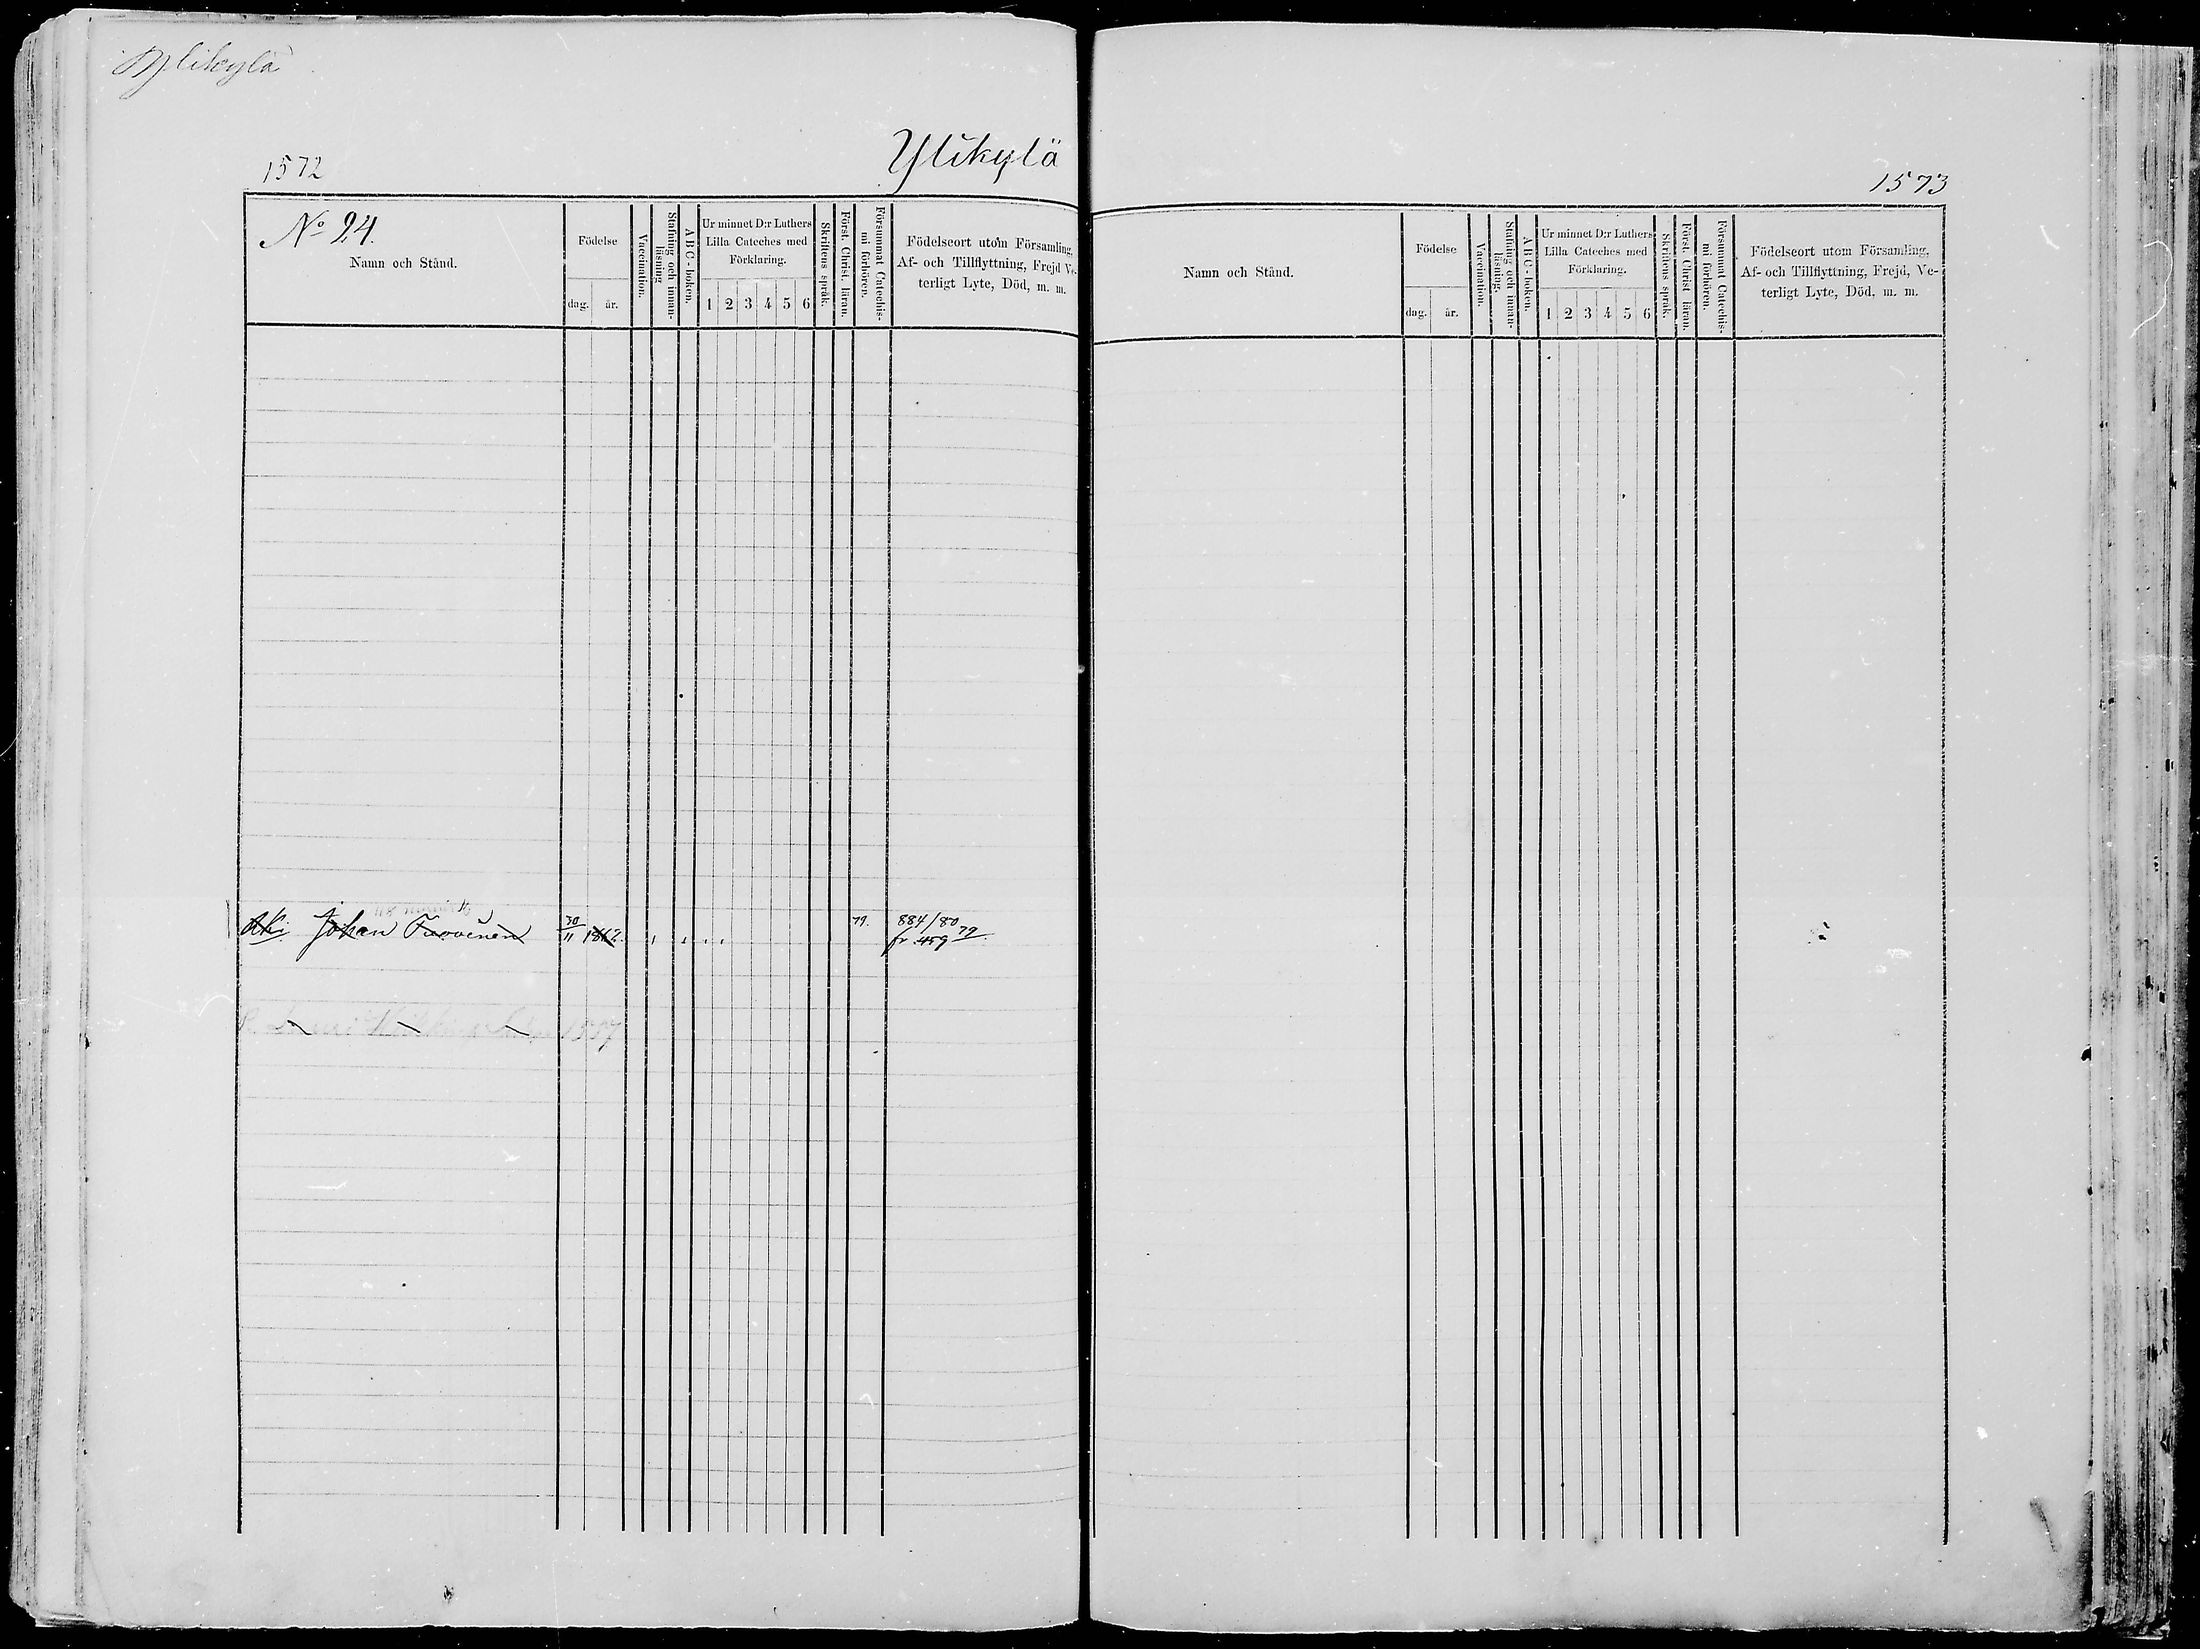 Ylikylä
1572
Ylikylä
No 24.
Namn och Stånd.
Födelse
dag. år.
Vaccination.
Stafning och innan-
läsning
ABC-boken.
Ur minnet D:r Luthers
Lilla Cateches med
Förklaring.
1 2 3 4 5 6
Skriftens språk.
Först. Christ. läran.
Försummat Catechis-
mi förhören.
Födelseort utom Församling,
Af- och Tillflyttning, Frejd Ve-
terligt Lyte, Död, m. m.
Johan
30/11 1862.
79.
884/80
fr 459 79
1857
1573
Namn och Stånd.
Födelse
dag. år.
Vaccination.
Stafning och innan-
läsning.
ABC-boken.
Ur minnet D:r Luthers
Lilla Cateches med
Förklaring.
1 2 3 4 5 6
Skriftens språk.
Först. Christ läran.
Försummat Catechis-
mi förhören.
Födelseort utom Församling,
Af- och Tillflyttning, Frejd, Ve-
terligt Lyte, Död, m. m.